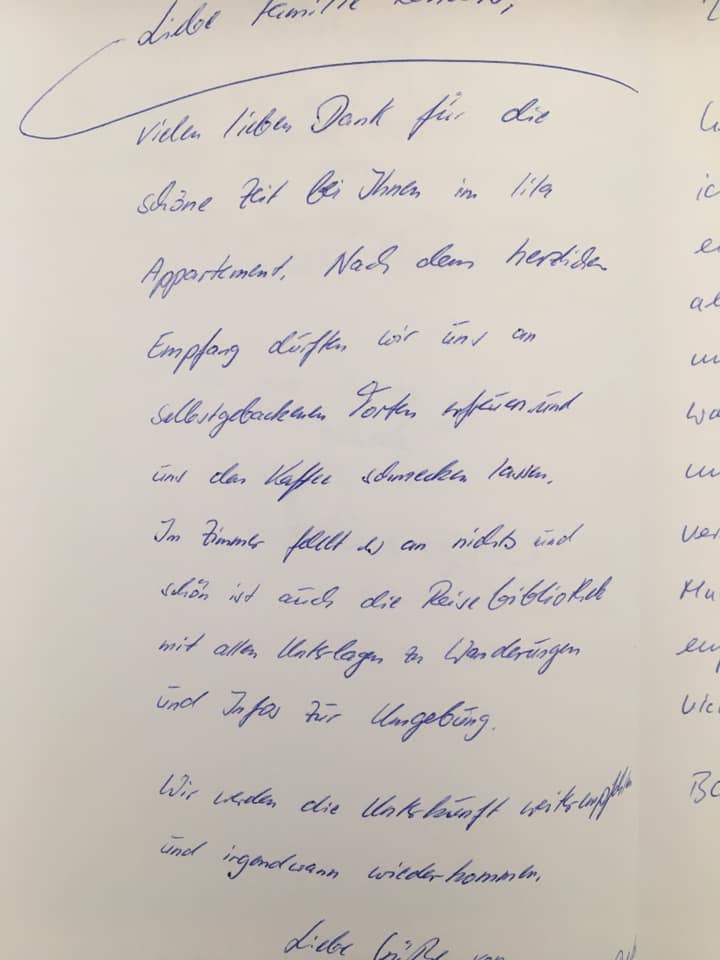 Liebe Familie
vielen lieben Dank für die
schöne Zeit bei Ihnen im lila
Appartement. Nach dem herzlichen
Empfang dürften wir uns an
selbstgebackenen Torten erfreuen und
uns den Kaffee schmecken lassen.
Im Zimmer fehlt es an nichts und
schön ist auch die Reisebibliothek
mit allen Unterlagen zu Wanderungen
und Infos zur Umgebung.
Wir werden die Unterkunft weiterempfehlen
und irgendwann wiederkommen.
Liebe Grüße von